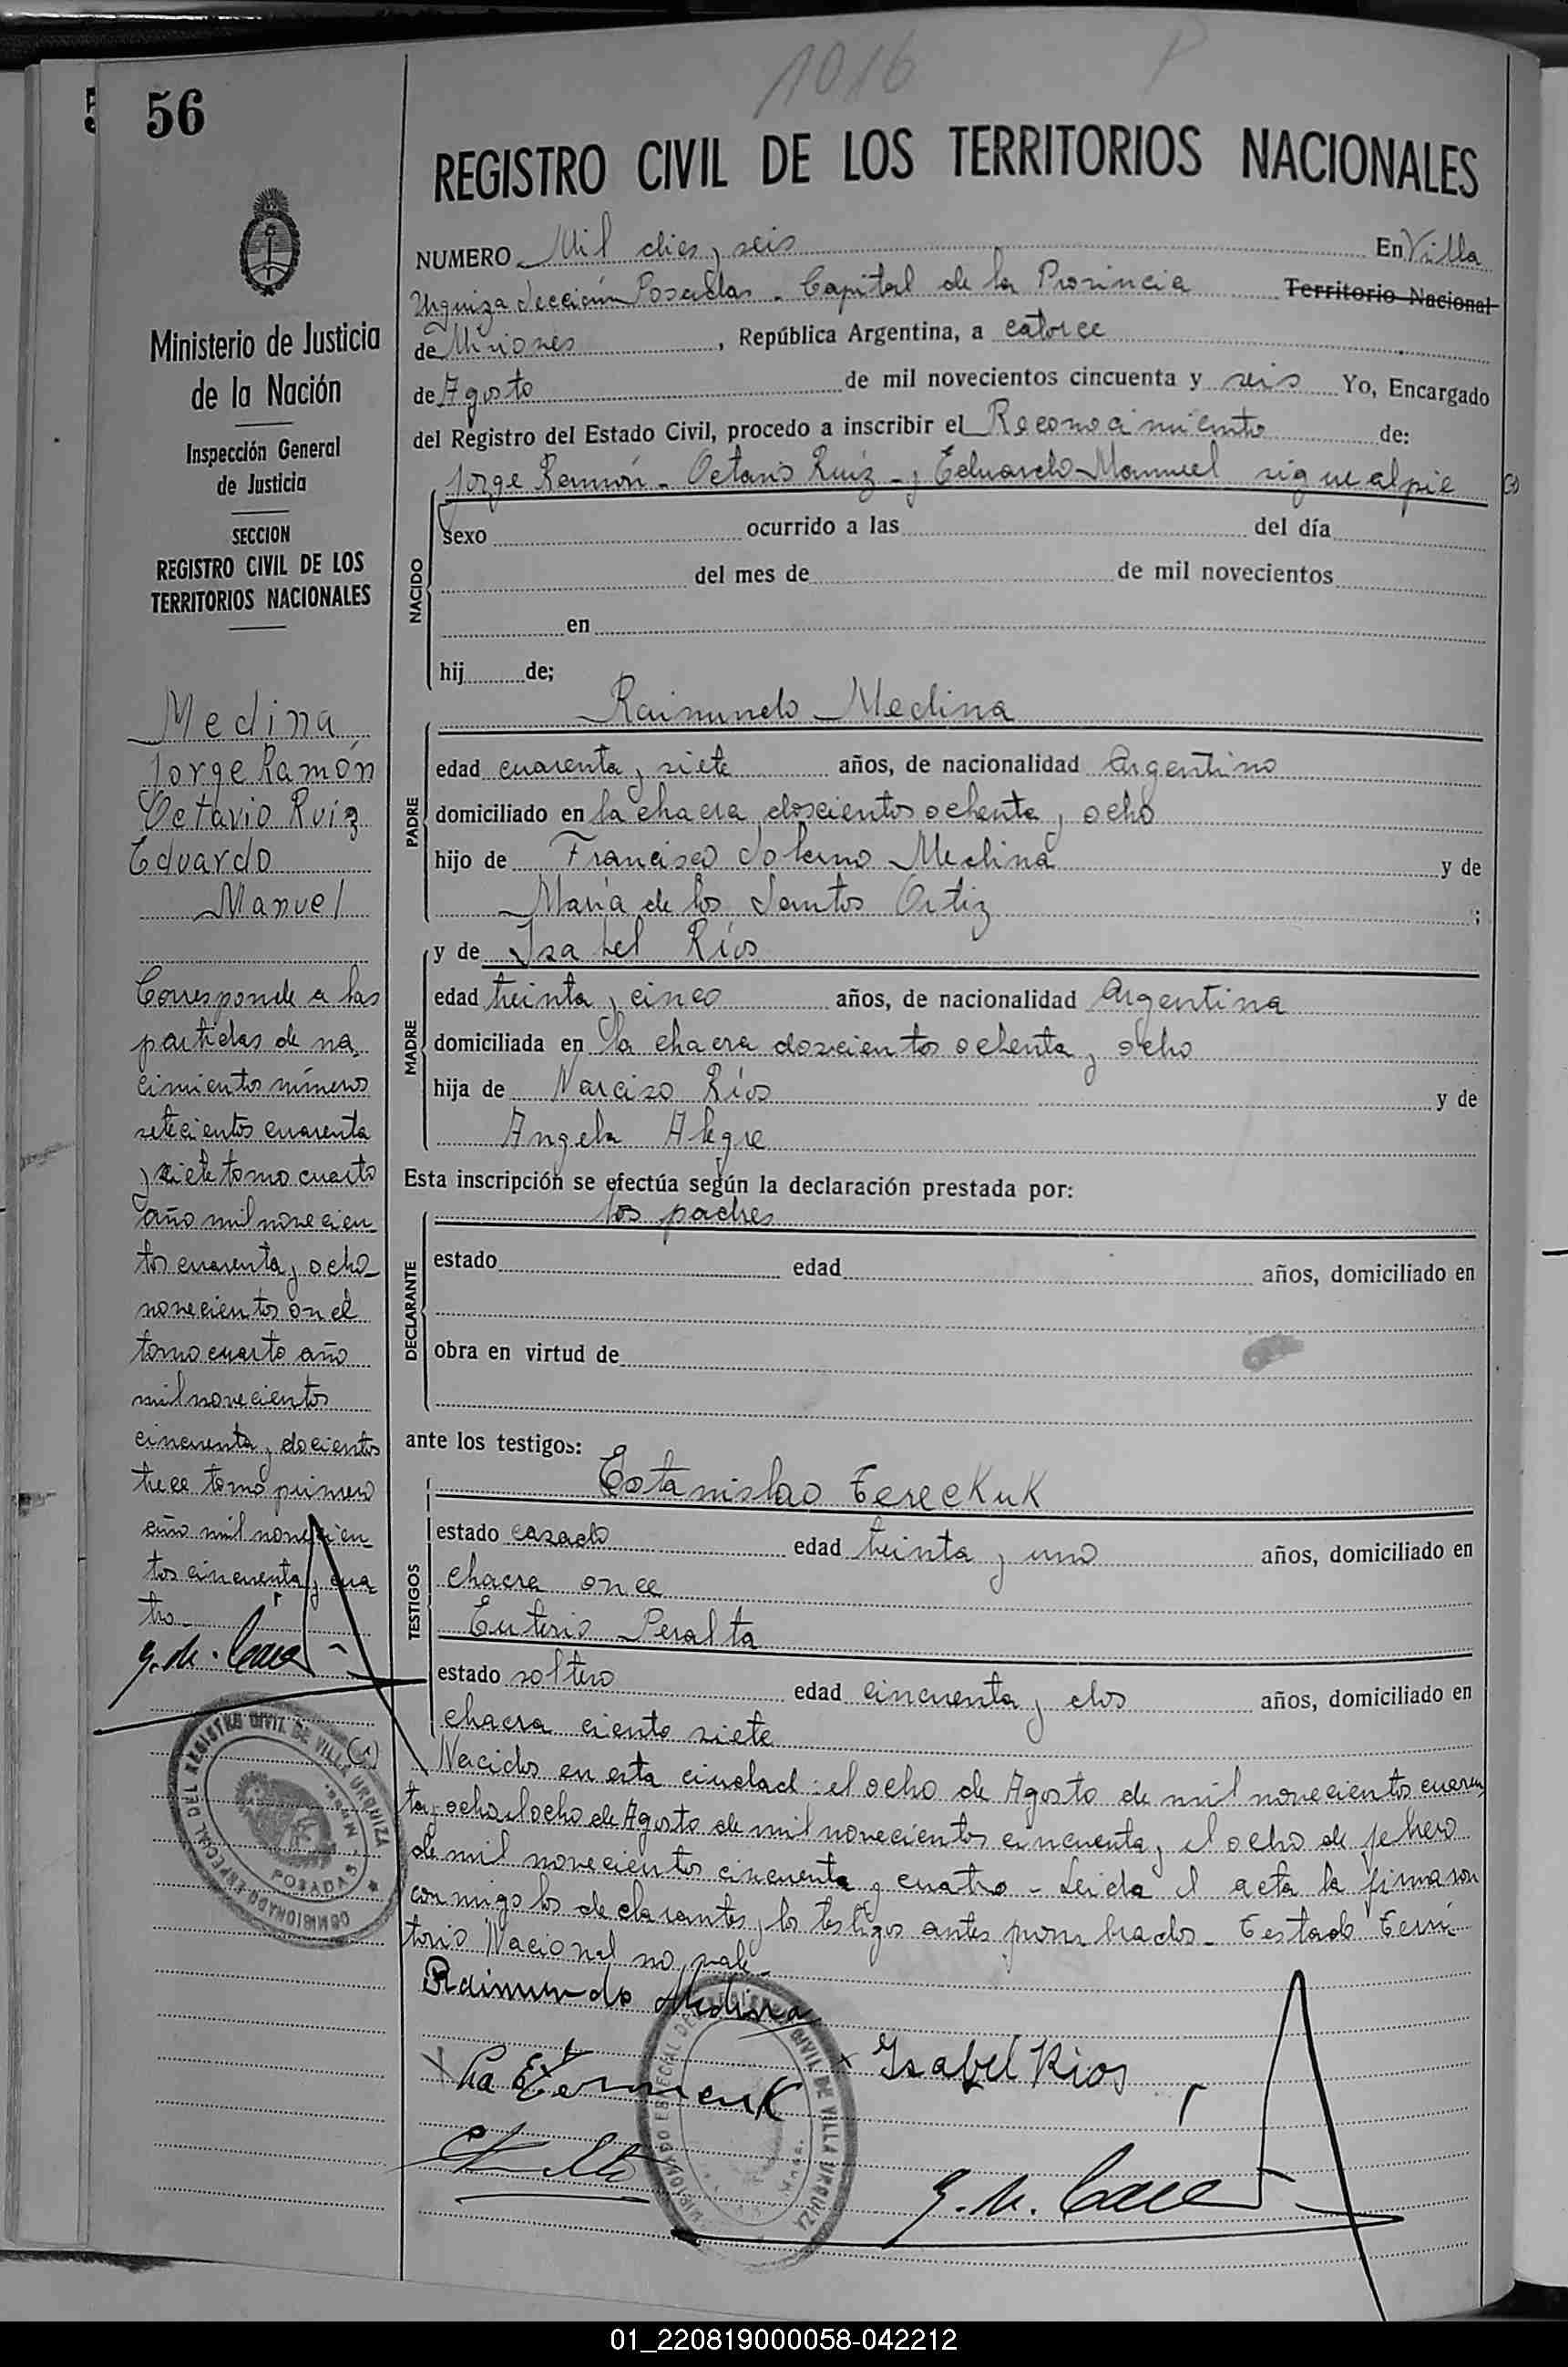 1016 P
56
REGISTRO CIVIL DE LOS TERRITORIOS NACIONALES
NUMERO Mil dies y seis En Villa
Urquiza Sección Posadas - Capital de la Provincia Territorio Nacional
de Misiones, República Argentina, a catorce
de Agosto de mil novecientos cincuenta y seis Yo, Encargado
del Registro del Estado Civil, procedo a inscribir el Reconocimiento de:
Jorge Ramón - Octavio Ruíz - y Eduardo Manuel sigue al pie (1)
NACIDO
sexo ocurrido a las del día
del mes de de mil novecientos
en
hij de;
PADRE
Raimundo Medina
edad cuarenta y siete años, de nacionalidad Argentino
domiciliado en la chacra doscientos ochenta y ocho
hijo de Francisco Solano Medina y de
María de los Santos Ortiz ;
MADRE
y de Isabel Ríos
edad treinta y cinco años, de nacionalidad Argentina
domiciliada en la chacra doscientos ochenta y ocho
hija de Narciso Ríos y de
Angela Alegre
Esta inscripción se efectúa según la declaración prestada por:
DECLARANTE
los padres
estado edad años, domiciliado en
obra en virtud de
ante los testigos:
TESTIGOS
Estanislao Tereckuk
estado casado edad treinta y uno años, domiciliado en
chacra once
Euterio Peralta
estado soltero edad cincuenta y dos años, domiciliado en
chacra ciento siete
(1) Nacidos en esta ciudad: el ocho de Agosto de mil novecientos cuaren
ta y ocho el ocho de Agosto de mil novecientos cincuenta y el ocho de febrero
de mil novecientos cincuenta y cuatro - Leida el acta la firmaron
conmigo los declarantes y los testigos antes nombrados - Testado Terri
torio Nacional no vale -
Raimundo Medina
Isabel Rios
Ministerio de Justicia
de la Nación
Inspección General
de Justicia
SECCION
REGISTRO CIVIL DE LOS
TERRITORIOS NACIONALES
Medina
Jorge Ramón
Octavio Ruíz
Eduardo
Manuel
Corresponde a las
partidas de na
cimientos números
setecientos cuarenta
y siete tomo cuarto
año mil novecien
tos cuarenta y ocho -
novecientos once
tomo cuarto año
mil novecientos
cincuenta y docientos
trece tomo primero
año mil novecien
tos cincuenta y cua
tro -
COMISIONADO ESPECIAL DEL REGISTRO CIVIL DE VILLA URQUIZA
POSADAS Mnes.
COMISIONADO ESPECIAL DEL REGISTRO CIVIL DE VILLA URQUIZA
Mnes.
01_220819000058-042212